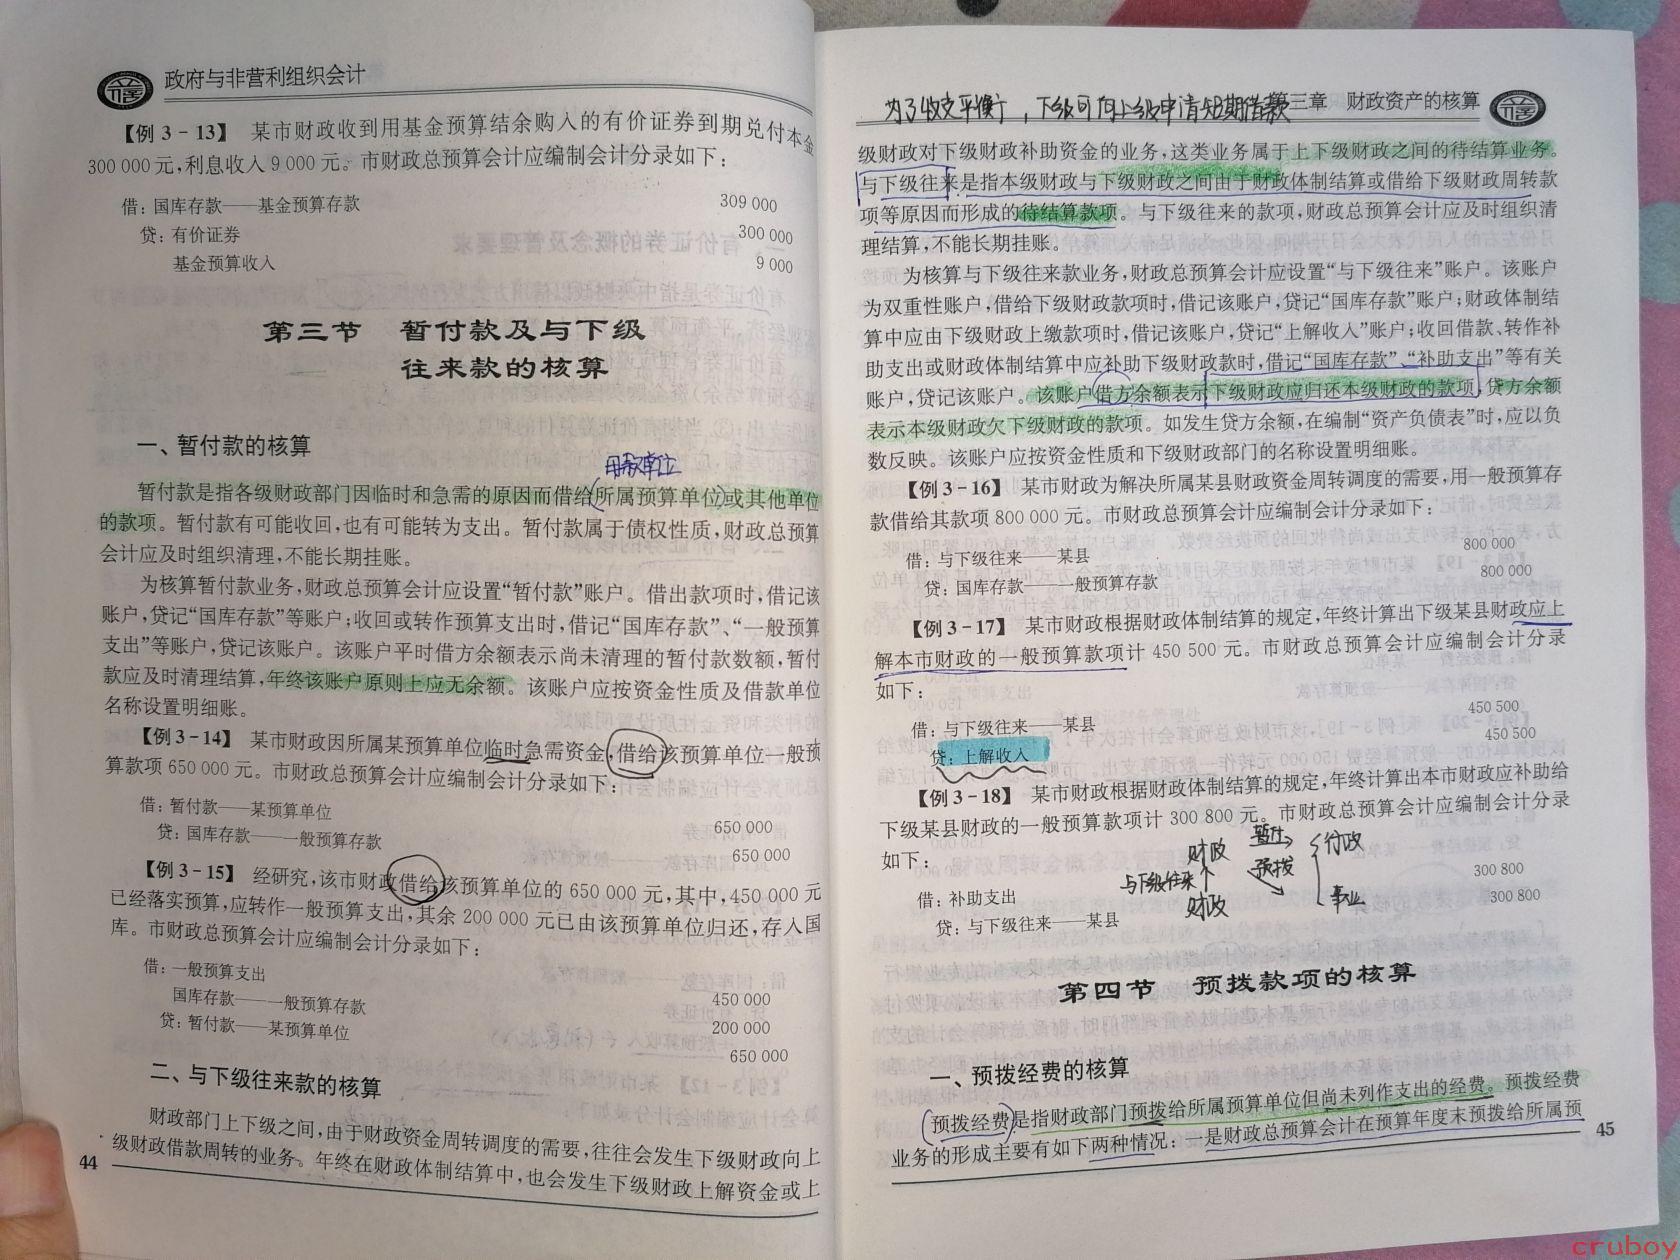 政府与非营利组织会计
【例3-13】 某市财政收到用基金预算结余购入的有价证券到期兑付本金
300 000元,利息收入9 000元。市财政总预算会计应编制会计分录如下:
借:国库存款——基金预算存款 309 000
贷:有价证券 300 000
基金预算收入 9 000
第三节 暂付款及与下级
往来款的核算
一、暂付款的核算
用款单位
暂付款是指各级财政部门因临时和急需的原因而借给所属预算单位或其他单位
的款项。暂付款有可能收回,也有可能转为支出。暂付款属于债权性质,财政总预算
会计应及时组织清理,不能长期挂账。
为核算暂付款业务,财政总预算会计应设置“暂付款”账户。借出款项时,借记该
账户,贷记“国库存款”等账户;收回或转作预算支出时,借记“国库存款”、“一般预算
支出”等账户,贷记该账户。该账户平时借方余额表示尚未清理的暂付款数额,暂付
款应及时清理结算,年终该账户原则上应无余额。该账户应按资金性质及借款单位
名称设置明细账。
【例3-14】 某市财政因所属某预算单位临时急需资金,借给该预算单位一般预
算款项650 000元。市财政总预算会计应编制会计分录如下:
借:暂付款——某预算单位 650 000
贷:国库存款——一般预算存款 650 000
【例3-15】 经研究,该市财政借给该预算单位的650 000元,其中,450 000元
已经落实预算,应转作一般预算支出,其余200 000元已由该预算单位归还,存入国
库。市财政总预算会计应编制会计分录如下:
借:一般预算支出 450 000
国库存款——一般预算存款 200 000
贷:暂付款——某预算单位 650 000
二、与下级往来款的核算
财政部门上下级之间,由于财政资金周转调度的需要,往往会发生下级财政向上
级财政借款周转的业务。年终在财政体制结算中,也会发生下级财政上解资金或上
44
为了收支平衡,下级可向上级申请短期借款
第三章 财政资产的核算
级财政对下级财政补助资金的业务,这类业务属于上下级财政之间的待结算业务。
与下级往来是指本级财政与下级财政之间由于财政体制结算或借给下级财政周转款
项等原因而形成的待结算款项。与下级往来的款项,财政总预算会计应及时组织清
理结算,不能长期挂账。
为核算与下级往来款业务,财政总预算会计应设置“与下级往来”账户。该账户
为双重性账户,借给下级财政款项时,借记该账户,贷记“国库存款”账户;财政体制结
算中应由下级财政上缴款项时,借记该账户,贷记“上解收入”账户;收回借款、转作补
助支出或财政体制结算中应补助下级财政款时,借记“国库存款”、“补助支出”等有关
账户,贷记该账户。该账户借方余额表示下级财政应归还本级财政的款项,贷方余额
表示本级财政欠下级财政的款项。如发生贷方余额,在编制“资产负债表”时,应以负
数反映。该账户应按资金性质和下级财政部门的名称设置明细账。
【例3-16】 某市财政为解决所属某县财政资金周转调度的需要,用一般预算存
款借给其款项800 000元。市财政总预算会计应编制会计分录如下:
借:与下级往来——某县 800 000
贷:国库存款——一般预算存款 800 000
【例3-17】 某市财政根据财政体制结算的规定,年终计算出下级某县财政应上
解本市财政的一般预算款项计450 500元。市财政总预算会计应编制会计分录
如下:
借:与下级往来——某县 450 500
贷:上解收入 450 500
【例3-18】 某市财政根据财政体制结算的规定,年终计算出本市财政应补助给
下级某县财政的一般预算款项计300 800元。市财政总预算会计应编制会计分录
如下:
财政 暂付 行政
与下级往来 预拨
财政 事业
借:补助支出 300 800
贷:与下级往来——某县 300 800
第四节 预拨款项的核算
一、预拨经费的核算
预拨经费是指财政部门预拨给所属预算单位但尚未列作支出的经费。预拨经费
业务的形成主要有如下两种情况:一是财政总预算会计在预算年度末预拨给所属预
45
cruboy